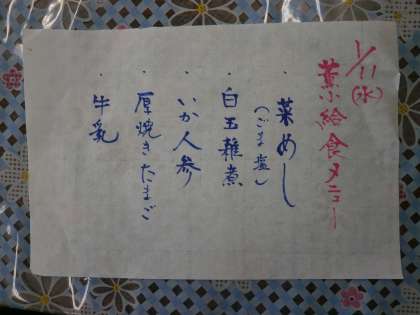 1/11(水)
薫小給食メニュー
・菜めし
(ごま塩)
・白玉雑煮
・いか人参
・厚焼きたまご
・牛乳